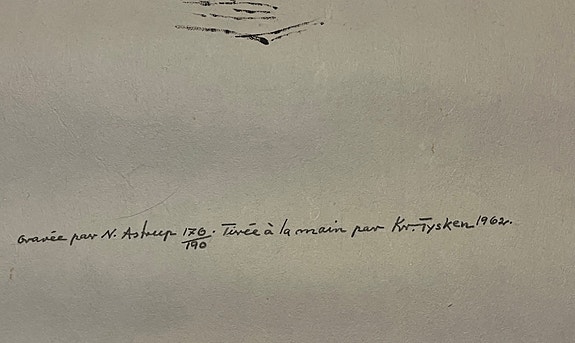 Gravée par N. Astrup 176/190. Tirée à la main par Kr. Tysken 1962.